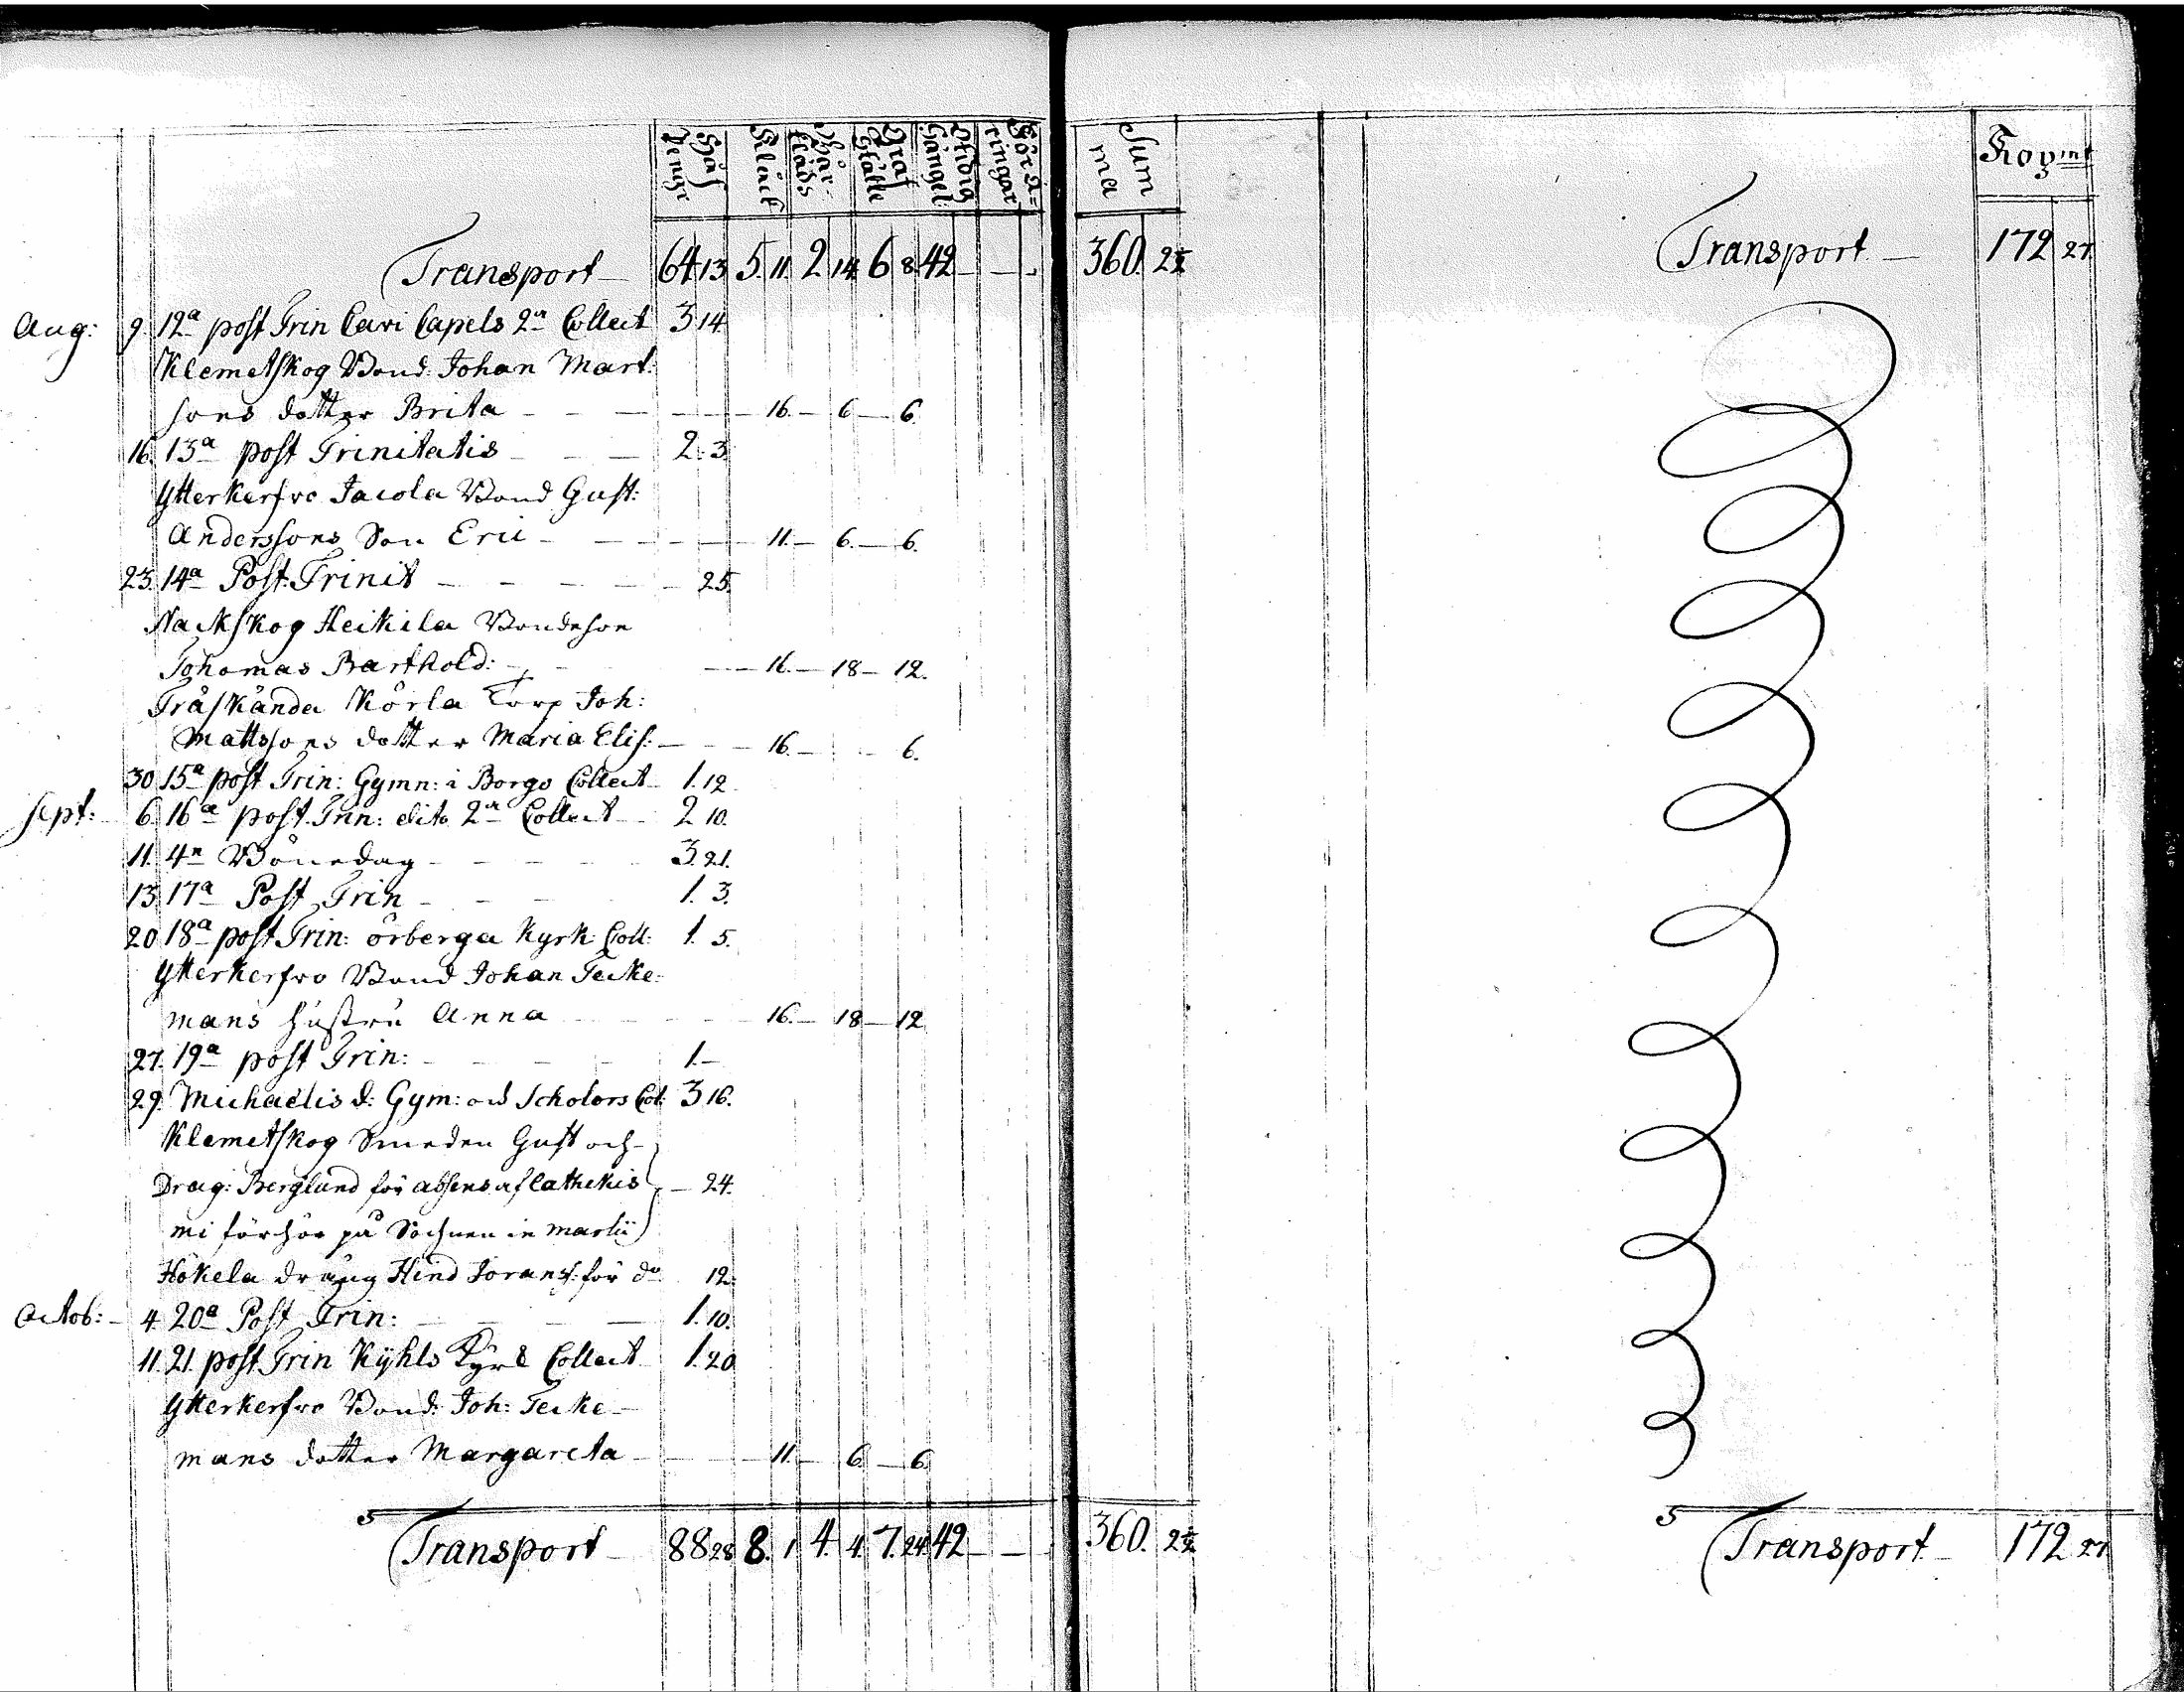 Håf Penngr Klåck Bår Kläds Graf Ställe Stidig Gängel: För ä= ringar
Transport 64 13 5. 11. 2 14 6 8. 42 – – –
Aug: 9. 12a post Trin Cavi Capels 2a Collect 3 14
Klemetskog Bond: Johan Mart:
sons dotter Brita – – – 16. – 6 – 6.
16. 13a post Trinitatis – – 2. 3.
Ytterkerfvo Jacola Bond Gust:
Anderssons Son Eric – – – 11. – 6. – 6.
23. 14a Post: Trinit – – – – 25.
Nackskog Heikila Bondeson
Tohomas Barthold: – – – 16. – 18 – 12.
Träskända Körla Torp Joh:
Mattssons dotter Maria Elis: – – 16. – – 6.
30 15a post Trin: Gymn: i Borgo Collect 1. 12
Sept: 6. 16a post Trin: dito 2a Collect – 2 10.
11. 4n Bönedag – – – – 3. 21.
13. 17a Post Trin – – – 1. 3.
20 18a post Trin: örberga Kyrk: Coll: 1. 5.
Ytterkerfvo Bond Johan Tecke=
mans hustru Anna – – – 16. – 18 – 12
27. 19a post Trin: – – – 1. –
29. Michaëlis d: Gym: och Scholors Col: 3 16.
Klemetskog Smeden Gust och –
Drag: Berglund för absens af Cathekis – 24.
mi förhör på Sochnen in Martii
Hökela dräng Hind Jorans: för do 12.
Octob: – 4. 20a Post Trin: – – – 1. 10.
11. 21. post Trin Kÿhls Kyrk Collect 1. 20
Ytterkerfvo Bond: Joh: Tecke –
mans dotter Margareta – – – 11. – 6. – 6.
Transport 88 28 8. 1 4. 4. 7. 24 42 – –
Sum ma
360. 2½
360. 2½
Kopmt
Transport – 172 27.
Transport – 172 27